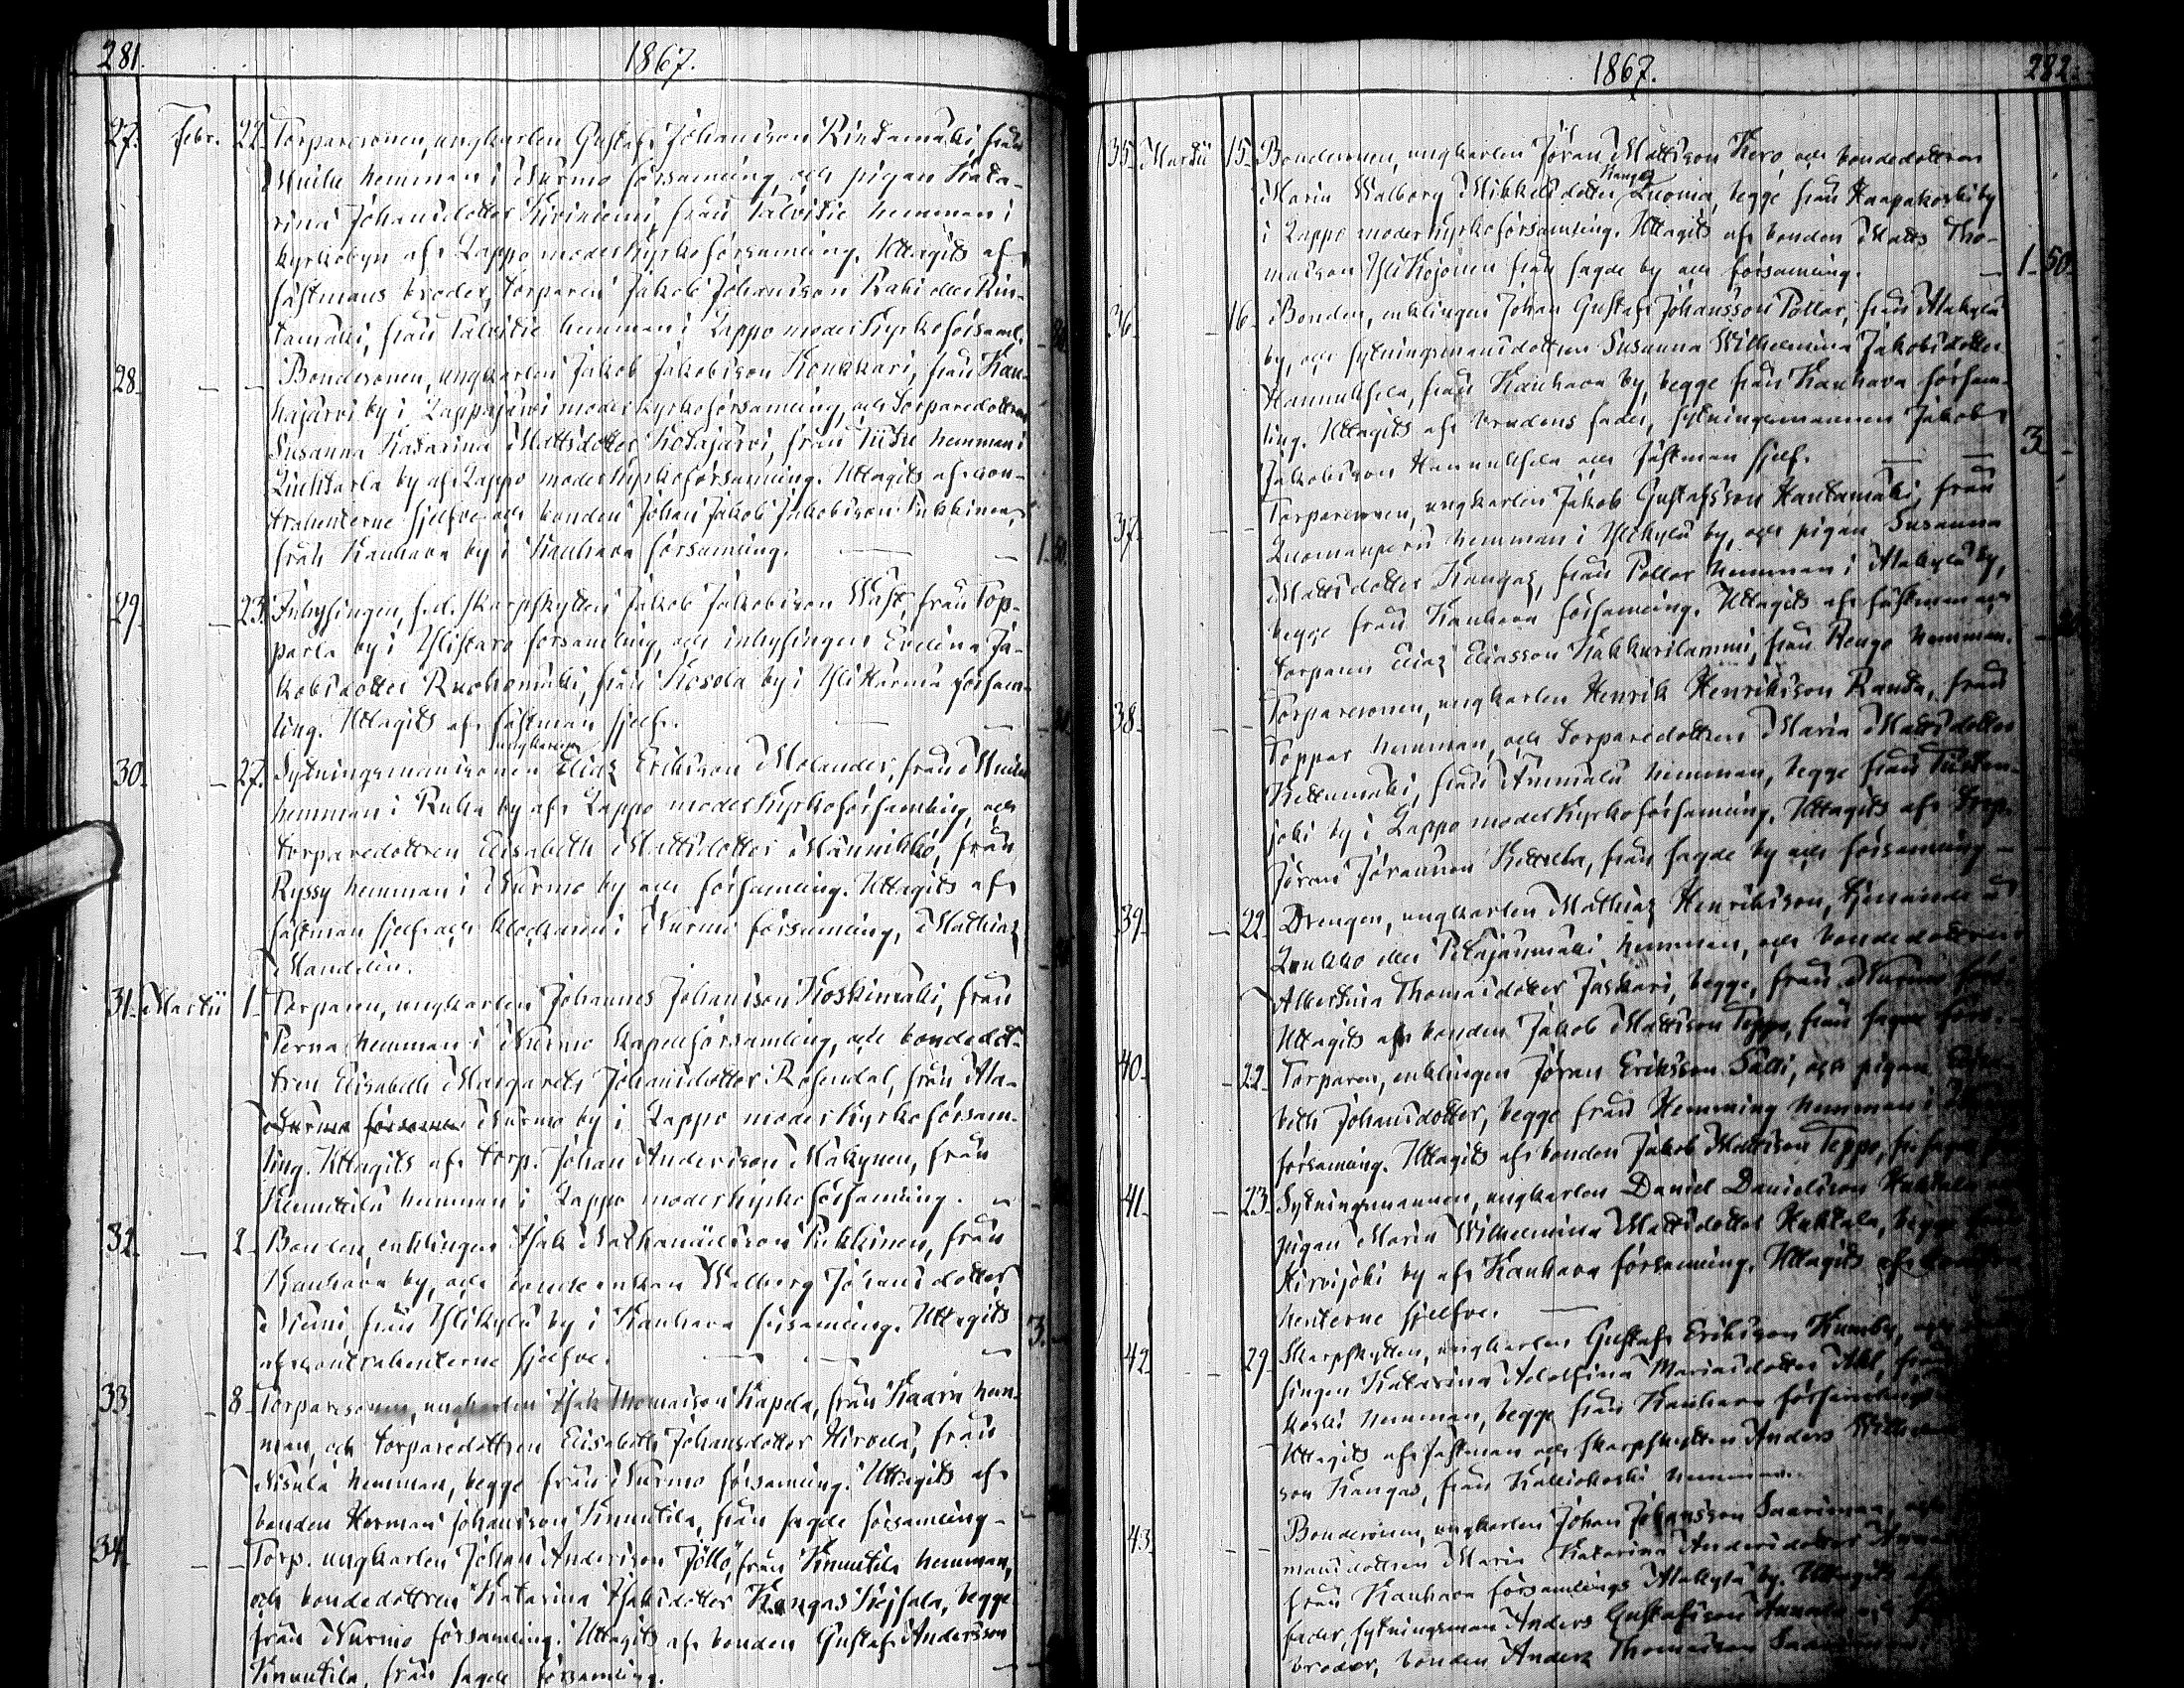 281. 1867.
27. Febr. 22. Torparesonen, ungkarlen Gustaf Johansson Rindamäki, från
hemman i Nurmo församling, och pigan Kata-
rina Johansdotter Kiviniemi, från Talvitie hemman i
kyrkobyn af Lappo moderkyrkoförsamling. Uttagits af
fästmans broder, torparen Jakob Johansson eller Rin-
tamäki, från Talvitie hemman i Lappo moderkyrkoförsaml.
28. — — Bondesonen, ungkarlen Jakob Jakobsson Konkkari, från Kau-
hajärvi by i Lappajärvi moderkyrkoförsamling, och torparedottren
Susanna Katarina Mattsdotter Kotajärvi, från hemman i
Liuhtarla by af Lappo moderkyrkoförsamling. Uttagits af con-
trahenterne sjelfve och bonden Johan Jakob Jakobsson Pukkinen,
från Kauhava by i Kauhava församling. — — 1. 50.
29. — 23. Inhysingen, f.d. skarpskytten Jakob Jakobsson Wast, från Top-
parla by i Ylistaro församling, och inhysingen Evelina Ja-
kobsdotter Ruohomäki, från Kosola by i Ylihärmä försam-
ling. Uttagits af fästman sjelf. — —
ungkarlen
30. — 27. Sytningsmanssonen Elias Eriksson Molander, från
hemman i Ruha by af Lappo moderkyrkoförsamling, och
torparedottren Elisabeth Mattsdotter Männikkö, från
Ryssy hemman i Nurmo by och församling. Uttagits af
fästman sjelf och klockaren i Nurmo församling, Mathias
Mandelin.
31. Martii 1. Torparen, ungkarlen Johannes Johansson Koskimäki, från
Perna hemman i Nurmo kapellförsamling, och bondedot-
tren Elisabeth Margareta Johansdotter Rosendal, från Ala-
Nurmo Nurmo by i Lappo moderkyrkoförsam-
ling. Uttagits af torp. Johan Andersson Mäkynen, från
hemman i Lappo moderkyrkoförsamling. —
32. — 2. Bonden, enklingen Isak Nathanaelsson Pukkinen, från
Kauhava by, och bondeenkan Walborg Johansdotter
Niemi, från Ylikylä by i Kauhava församling. Uttagits
af contrahenterne sjelfve. — — — 3. —
33. — 8. Torparesonen, ungkarlen Isak Thomasson Kapela, från Kaara hem-
man, och torparedottren Elisabeth Johansdotter Hirvelä, från
Nisula hemman, begge från Nurmo församling. Uttagits af
bonden Herman Johansson Knuutila, från sagde församling.—
34. — — Torp. ungkarlen Johan Andersson Jöllö, från Knuutila hemman,
och bondedottren Katarina Isaksdotter Kangas Kojsala, begge
från Nurmo församling. Uttagits af bonden Gustaf Andersson
Knuutila, från sagde församling. —
1867. 282.
35. Martii 15. Bondesonen, ungkarlen Jöran Mattsson Kero, och bondedottren
Kangas
Maria Walborg Mikkelsdotter Luoma, begge från Haapakoski by
i Lappo moderkyrkoförsamling. Uttagits af bonden Matts Tho-
masson Ylikojonen från sagde by och församling. — 1. 50.
36. — 16. Bonden, enklingen Johan Gustaf Johansson Pollar, från Alakylä
by, och sytningsmansdottren Susanna Wilhelmina Jakobsdotter
Hannuksela, från Kauhava by, begge från Kauhava försam-
ling. Uttagits af brudens fader, sytningsmannen Jakob
Jakobsson Hannuksela och fästman sjelf. — — 3. —
37. — — Torparesonen, ungkarlen Jakob Gustafsson Hautamäki, från
Luomanperä hemman i Ylikylä by, och pigan Susanna
Mattsdotter Kangas, från Pollar hemman i Alakylä by,
begge från Kauhava församling. Uttagits af fästman och
torparen Elias Eliasson Kakkurilammi, från Rengo hemman.
38. — — Torparesonen, ungkarlen Henrik Henriksson Randa, från
Toppar hemman, och torparedottren Maria Mattsdotter
Ketunmäki, från Ammälä hemman, begge från Tiisten-
joki by i Lappo moderkyrkoförsamling. Uttagits af torp.
Jöran Jöransson Kettula, från sagde by och församling —
39. — 22. Drengen, ungkarlen Mathias Henriksson, tjenande å
Laukko eller Petäjänmäki hemman, och bondedottren
Albertina Thomasdotter Jaskari, begge från Nurmo förs.
Uttagits af bonden Jakob Mattsson Teppo, från sagde förs.
40. — 22. Torparen, enklingen Jöran Eriksson Salli, och pigan
beth Johansdotter, begge från Hemming hemman i
församling. Uttagits af bonden Jakob Mattsson Teppo, fr. sagde
41. — 23. Sytningsmannen, ungkarlen Daniel Danielsson Huhtala
pigan Maria Wilhelmina Mattsdotter Huhtala, begge från
Hirvijoki by af Kauhava församling. Uttagits af
henterne sjelfve. —
42. — 29. Skarpskytten, ungkarlen Gustaf Eriksson Kumby,
singen Katarina Adolfina Mariasdotter
koski hemman, begge från Kauhava församling.
Uttagits af fästman och skarpskytten Anders
son Kangas, från Kalliokoski hemman.
43. — — Bondesonen, ungkarlen Johan Johansson Saarimaa,
mansdottren Maria Katarina Andersdotter
från Kauhava församlings Alakylä by. Uttagits af
fader, sytningsman Anders Gustafsson Annala och
broder, bonden Anders Thomasson